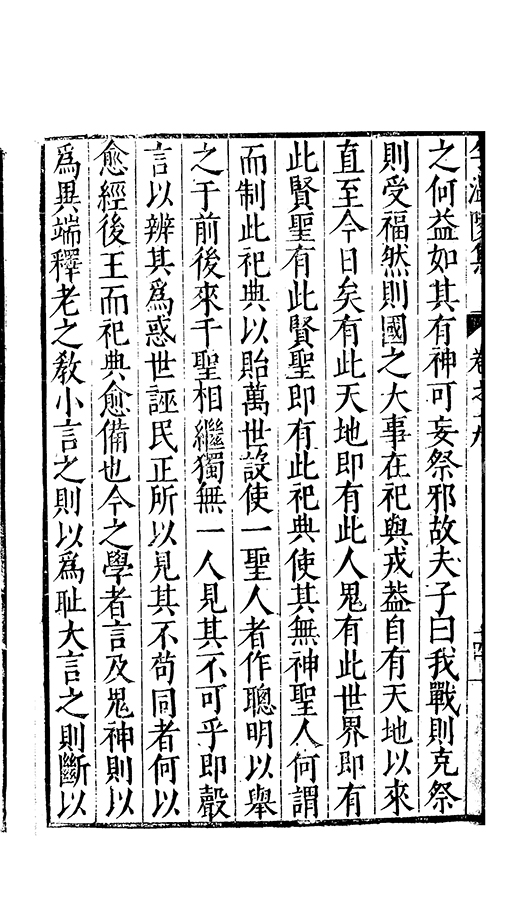 卷之十九
之何益如其有神可妄祭邪故夫子曰我戰則克祭
則受福然則國之大事在祀與戎葢自有天地以來
直至今日矣有此天地即有此人鬼有此世界即有
此賢聖有此賢聖即有此祀典使其無神聖人何謂
而制此祀典以貽萬世設使一聖人者作聰明以舉
之于前後來千聖相繼獨無一人見其不可乎即聲
言以辨其爲惑世誣民正所以見其不苟同者何以
愈經後王而祀典愈備也今之學者言及鬼神則以
爲異端釋老之教小言之則以爲耻大言之則斷以